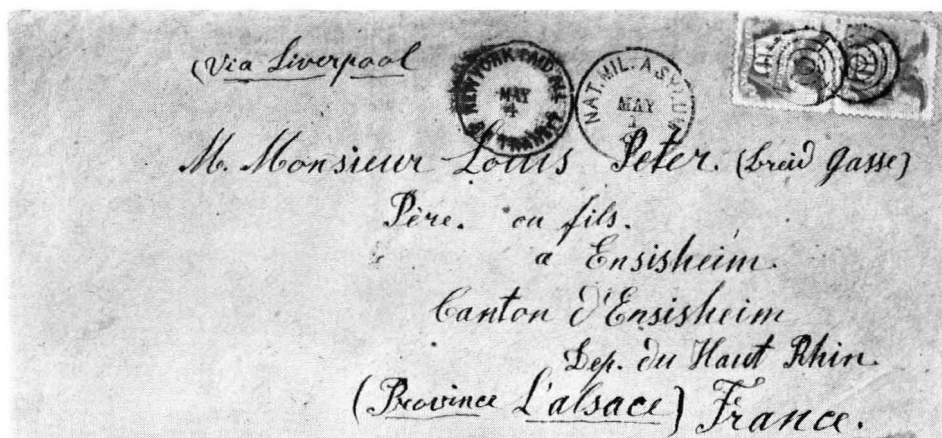 (Via Liverpool
NEW YORK PAID ALL
MAY
4
BR TRANSIT
NAT. MIL. ASYLUM
MAY
1
M. Monsieur Louis Peter. (breid Gasse)
Père. ou fils.
a Ensisheim.
Canton d'Ensisheim
Dep. du Haut Rhin.
(Province L'alsace) France.